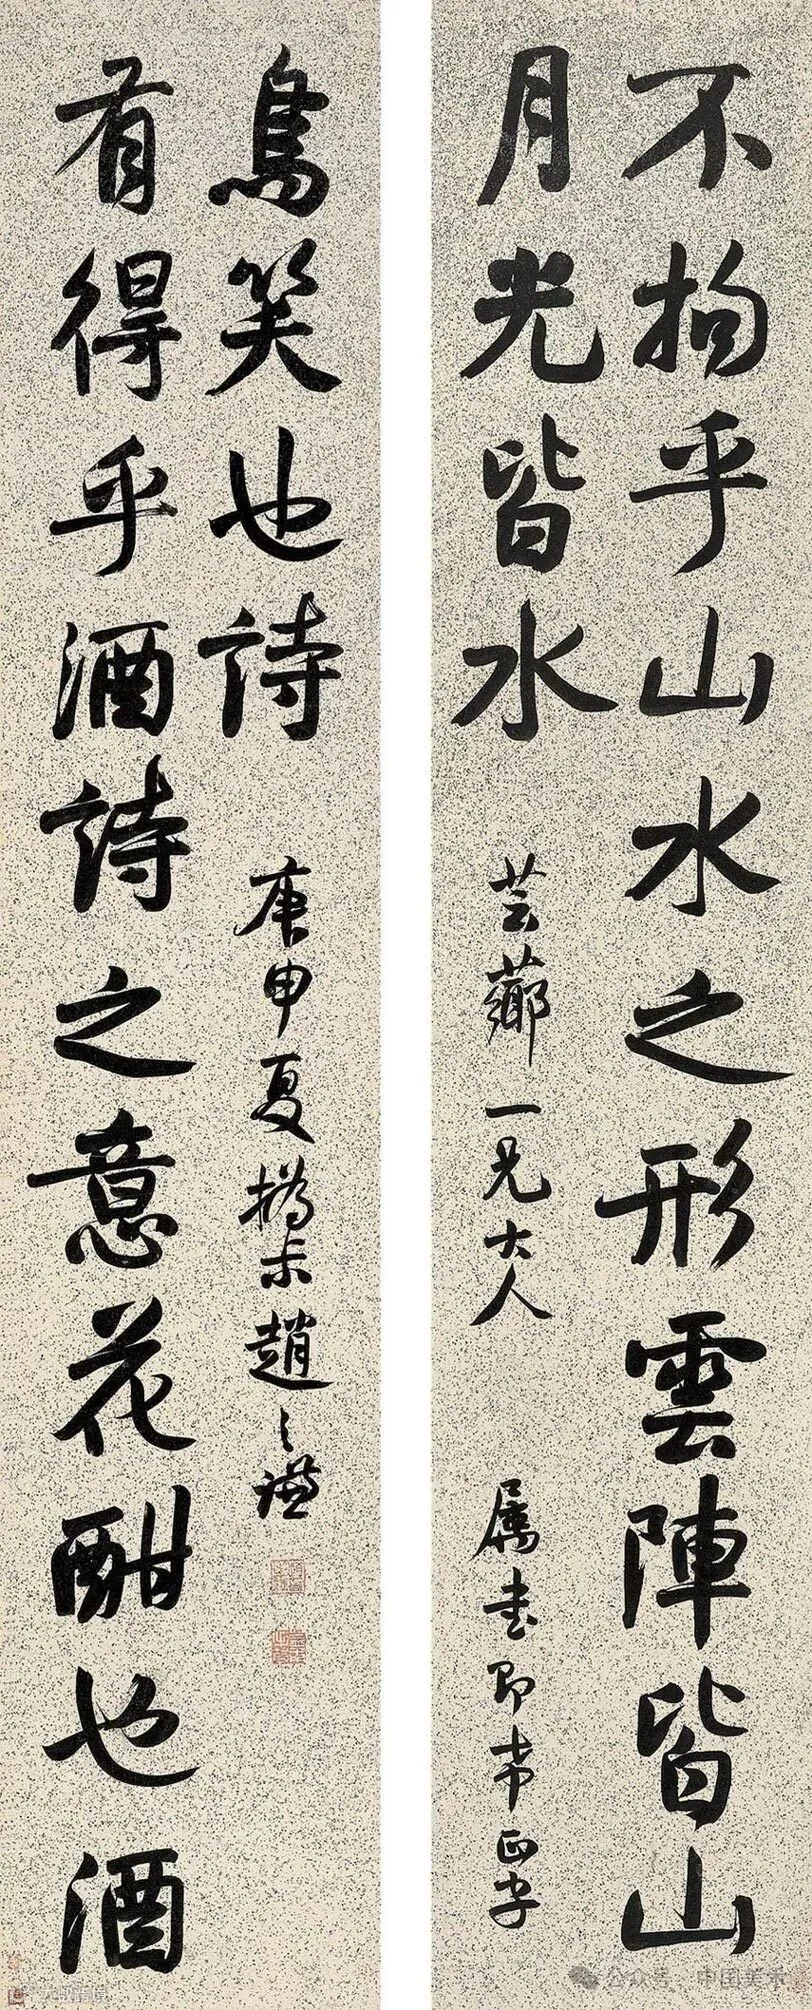 不拘乎山水之形雲陣皆山
月光皆水
芸薌一兄大人
属書即希正字
有得乎酒詩之意花酣也酒
鳥笑也詩
庚申夏撝尗趙之謙
公众号 · 中国美术